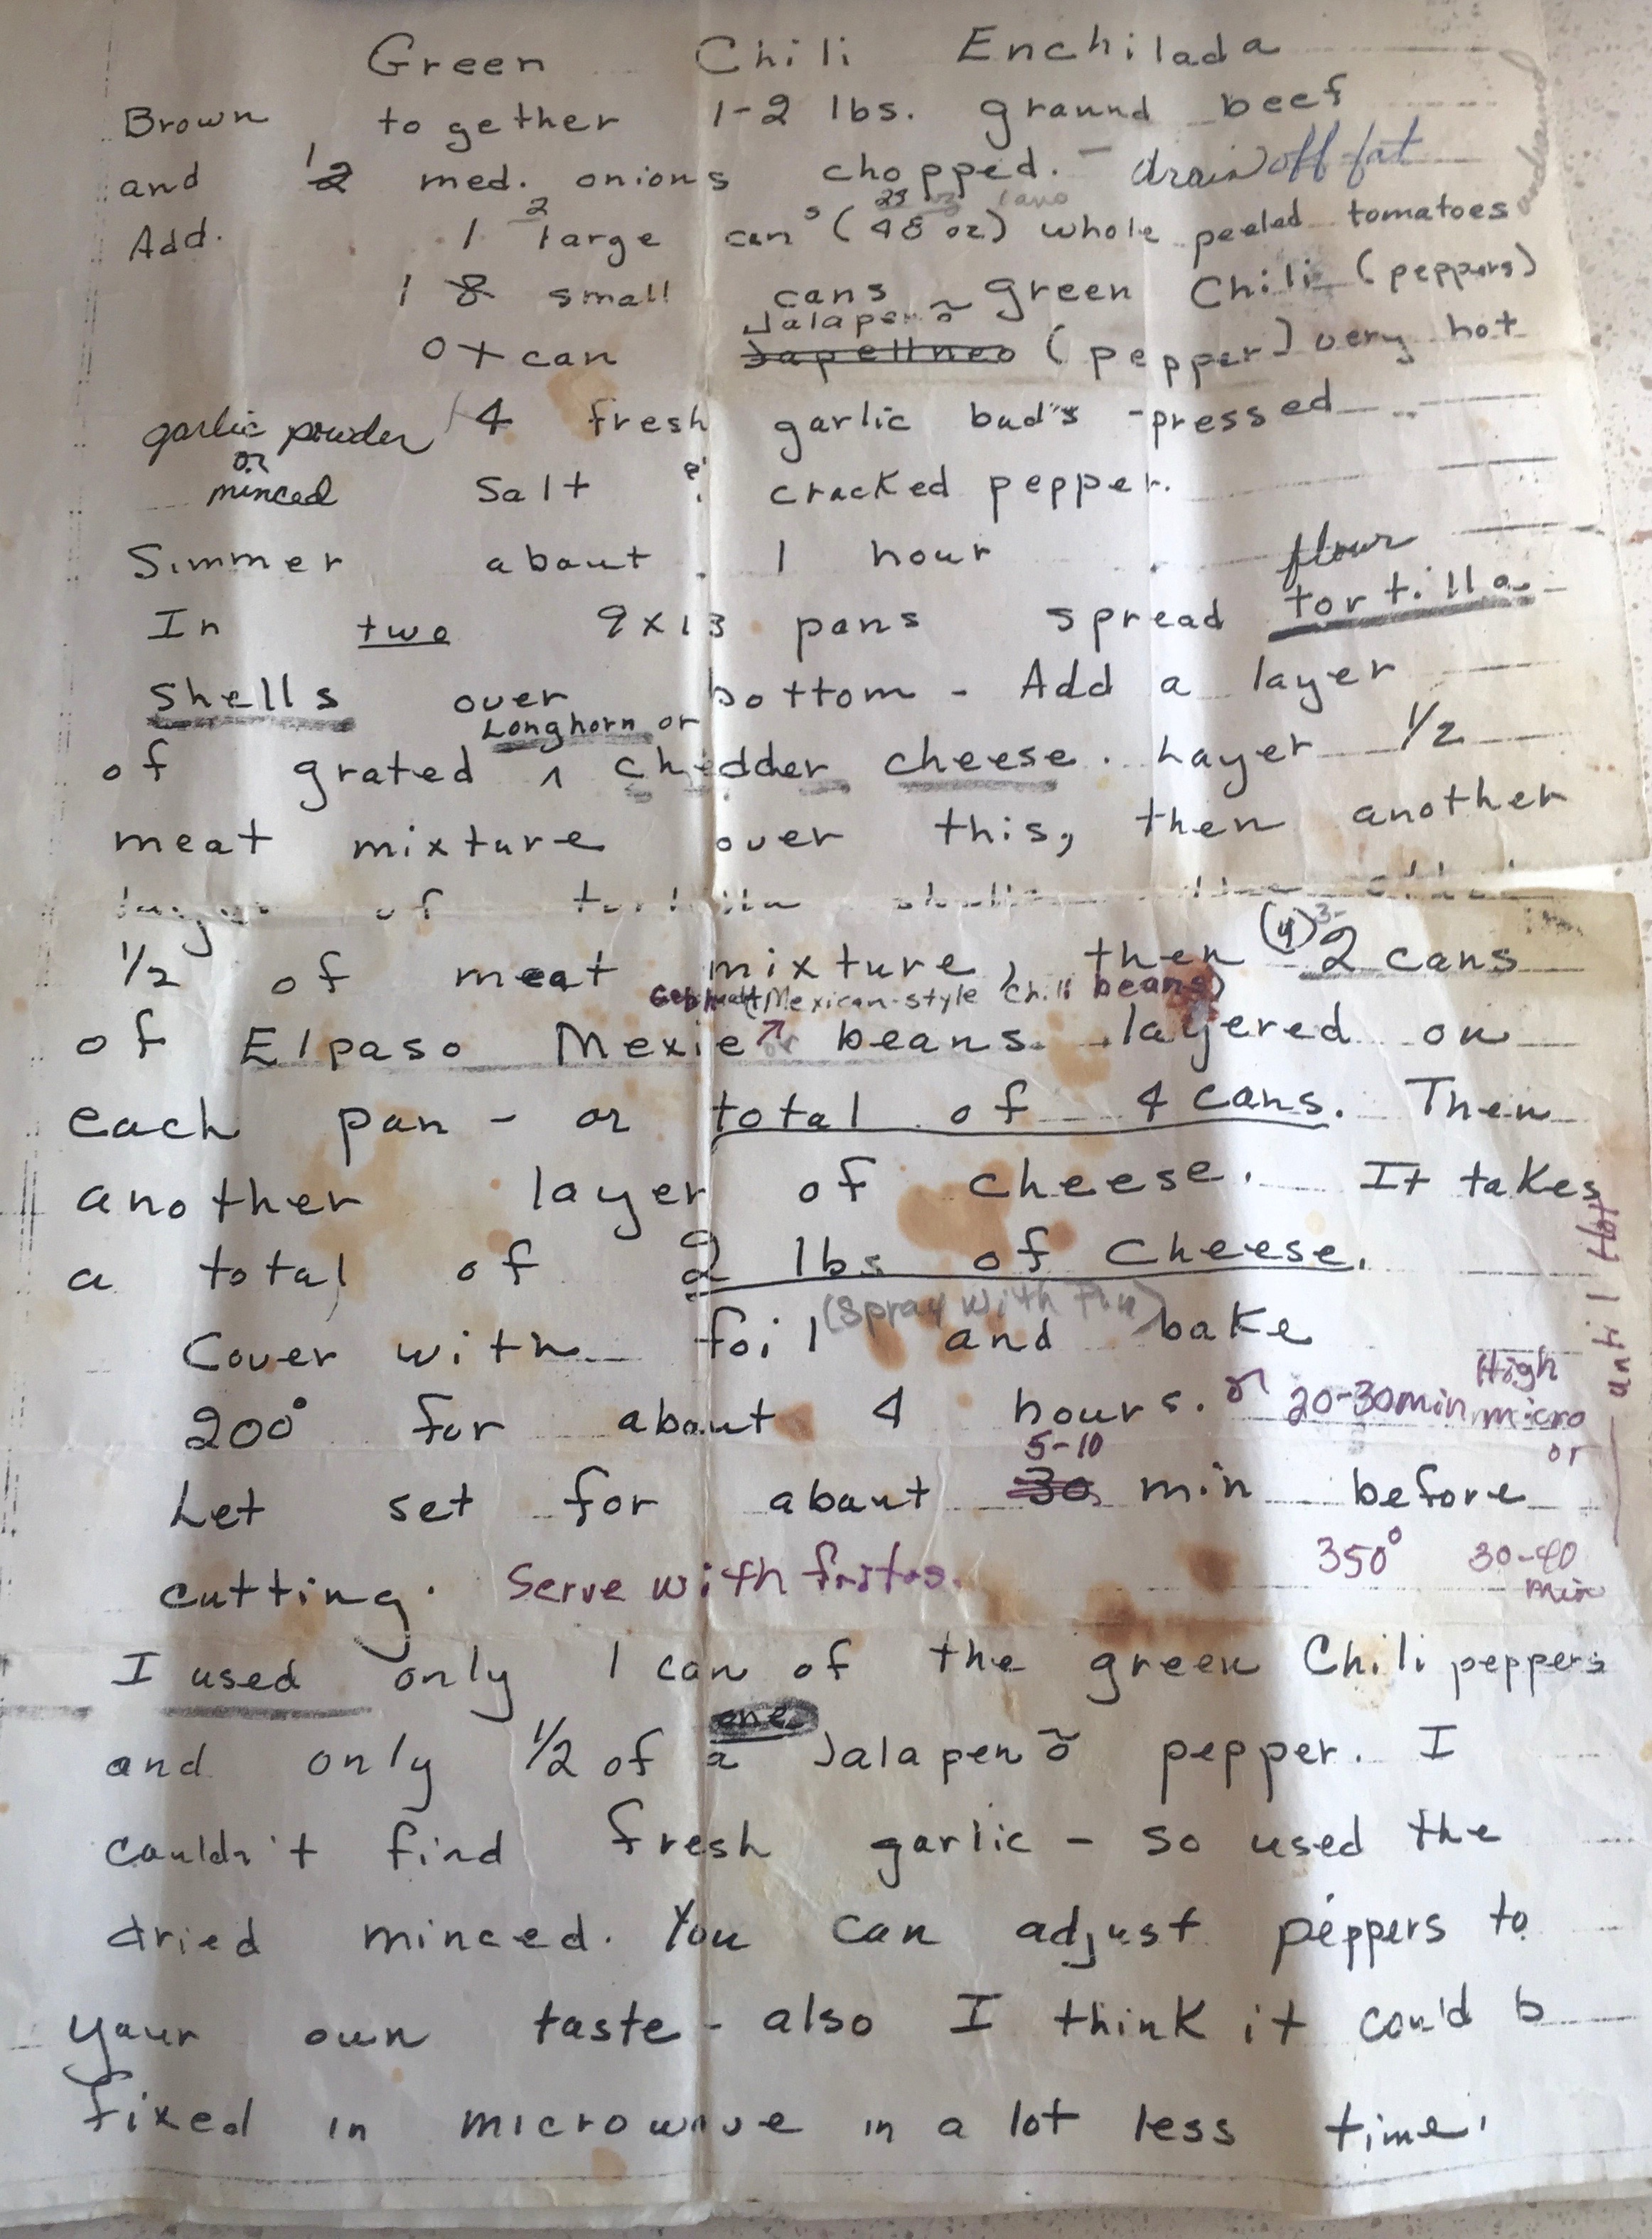 Green Chili Enchilada
Brown together 1-2 lbs. ground beef
and 1 2 med. onions chopped. - drain off fat
and drained
2 28
Add. 1 large can s (48 oz) whole peeled tomatoes
1 8 small cans green Chili (peppers)
Jalapenõ
can Japellneo (pepper) very hot
garlic powder 4 fresh garlic bud's - pressed
or
minced Salt & cracked pepper.
Simmer about 1 hour
flour
In two 9x13 pans spread tortilla
shells over bottom - Add a layer
Longhorn or
of grated ^ chedder cheese. Layer 1/2
meat mixture over this, then another
layer of tortilla shells
(4) 3-
1/2 of meat mixture, then 2 cans
Gebhardt (Mexican-style chili beans)
of Elpaso Mexie or beans layered on
each pan - or total of 4 cans. Then
another layer of cheese. It takes
a total of 2 lbs of cheese.
(Spray with Pam)
Cover with foil and bake
200° for about 4 hours. or 20-30 min High micro
or
until Hot
5-10
Let set for about 30 min before
350° 30-40 min
cutting. Serve with fritos.
I used only 1 can of the green Chili peppers
one
and only 1/2 of a Jalapenõ pepper. I
couldn't find fresh garlic - so used the
dried minced. You can adjust peppers to
your own taste - also I think it cou'd b
fixed in microwave in a lot less time.